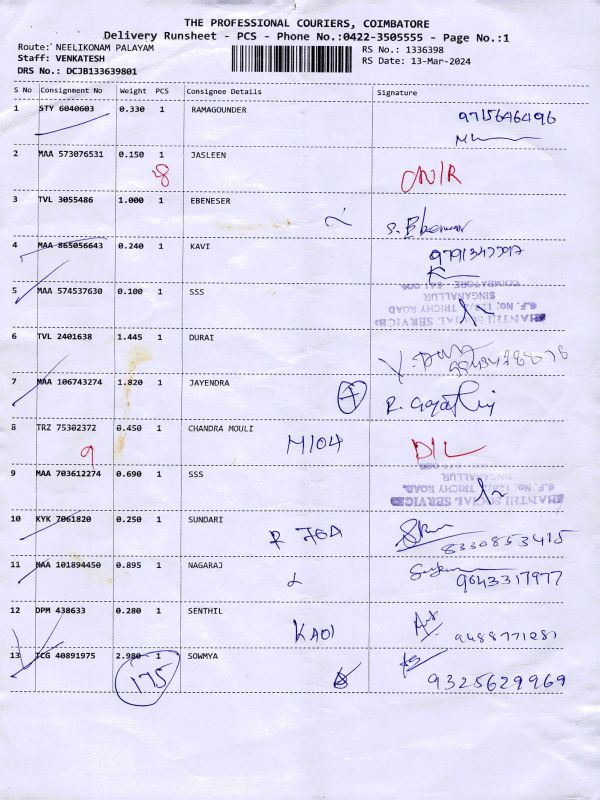 THE PROFESSIONAL COURIERS, COIMBATORE
Delivery Runsheet - PCS - Phone No.:0422-3505555 - Page No.:1
Route: NEELIKONAM PALAYAM RS No.: 1336398
Staff: VENKATESH RS Date: 13-Mar-2024
DRS No.: DCJB133639801
S No Consignment No Weight PCS Consignee Details Signature
1 STY 6040603 0.330 1 RAMAGOUNDER 9715646496
2 MAA 573076531 0.150 1 JASLEEN
8
3 TVL 3055486 1.000 1 EBENESER
4 MAA 865056643 0.240 1 KAVI
5 MAA 574537630 0.100 1 SSS
SHANTHI SOCIAL SERVICES
TRICHY ROAD
SINGANALLUR
6 TVL 2401638 1.445 1 DURAI
7 MAA 106743274 1.820 1 JAYENDRA
8 TRZ 75302372 0.450 1 CHANDRA MOULI M104 D/L
9
9 MAA 703612274 0.690 1 SSS
SHANTHI SOCIAL SERVICES
TRICHY ROAD,
SINGANALLUR
10 KYK 7061820 0.250 1 SUNDARI 8330853415
11 MAA 101894450 0.895 1 NAGARAJ 9643317977
12 DPM 438633 0.280 1 SENTHIL KA01 9488771281
13 TCG 40891975 2.980 1 SOWMYA 9325629969
175